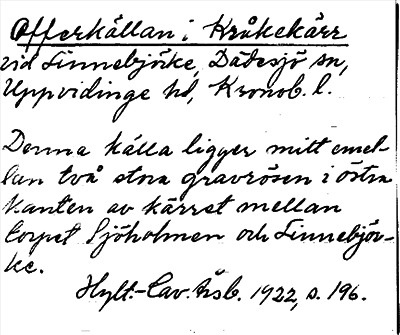 Offerkällan i Kråkekärr
vid Linnebjörke, Dädesjö sn,
Uppvidinge hd, Kronob. l.
Denna källa ligger mitt emel-
lan två stora gravrösen i östra
kanten av kärret mellan
torpet Sjöholmen och Linnebjör-
ke.
Hylt.-Cav. Åsb. 1922, s. 196.